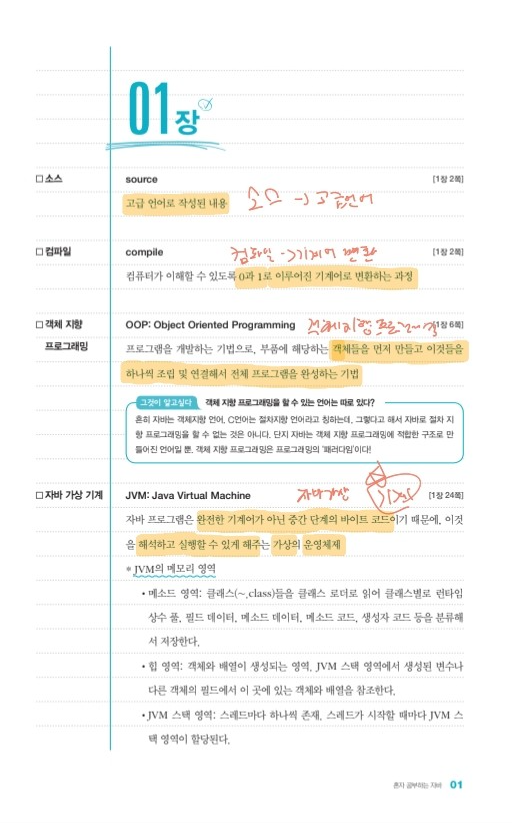 01장
□ 소스
source
[1장 2쪽]
고급 언어로 작성된 내용
소스 → 고급언어
□ 컴파일
compile
컴파일 → 기계어 변환
[1장 2쪽]
컴퓨터가 이해할 수 있도록 0과 1로 이루어진 기계어로 변환하는 과정
□ 객체 지향
프로그래밍
OOP: Object Oriented Programming
객체지향 프로그래밍
[1장 6쪽]
프로그램을 개발하는 기법으로, 부품에 해당하는 객체들을 먼저 만들고 이것들을
하나씩 조립 및 연결해서 전체 프로그램을 완성하는 기법
그것이 알고싶다 객체 지향 프로그래밍을 할 수 있는 언어는 따로 있다?
흔히 자바는 객체지향 언어, C언어는 절차지향 언어라고 칭하는데, 그렇다고 해서 자바로 절차 지
향 프로그래밍을 할 수 없는 것은 아니다. 단지 자바는 객체 지향 프로그래밍에 적합한 구조로 만
들어진 언어일 뿐, 객체 지향 프로그래밍은 프로그래밍의 '패러다임'이다!
□ 자바 가상 기계
JVM: Java Virtual Machine
자바가상 기계
[1장 24쪽]
자바 프로그램은 완전한 기계어가 아닌 중간 단계의 바이트 코드이기 때문에, 이것
을 해석하고 실행할 수 있게 해주는 가상의 운영체제
* JVM의 메모리 영역
• 메소드 영역: 클래스(~.class)들을 클래스 로더로 읽어 클래스별로 런타임
상수 풀, 필드 데이터, 메소드 데이터, 메소드 코드, 생성자 코드 등을 분류해
서 저장한다.
• 힙 영역: 객체와 배열이 생성되는 영역. JVM 스택 영역에서 생성된 변수나
다른 객체의 필드에서 이 곳에 있는 객체와 배열을 참조한다.
• JVM 스택 영역: 스레드마다 하나씩 존재. 스레드가 시작할 때마다 JVM 스
택 영역이 할당된다.
혼자 공부하는 자바 01